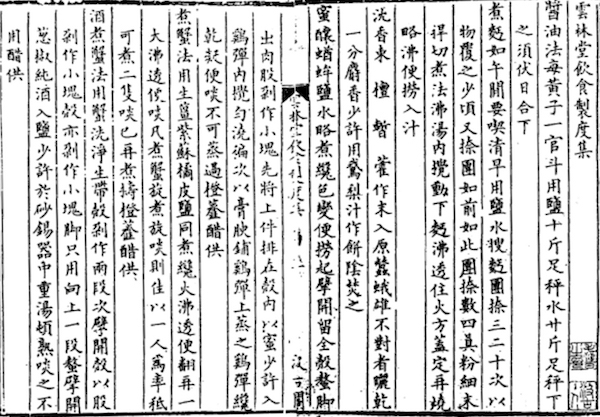 雲林堂飲食製度集
醬油法每黃子一官斗用鹽十斤足秤水廿斤足秤下
之須伏日合下
煮麪如午間要喫清早用鹽水搜麪團捺三二十次以
物覆之少頃又捺團如前如此團捺數四真粉細末
捍切煮法沸湯內攪動下麪沸透住火方蓋定再燒
略沸便撈入汁
洗香東 檀 蹔 藿作末入原蠶蛾雄不對者曬乾
一分麝香少許用鵞梨汁作餅陰焚之
蜜釀蝤蛑鹽水略煮纔色變便撈起擘開留全殼螯脚
出肉股剁作小塊先將上件排在殼內以蜜少許入
鷄彈內攪勻澆遍次以膏腴鋪鷄彈上蒸之鷄彈纔
乾凝便啖不可蒸過橙虀醋供
煮蟹法用生薑紫蘇橘皮鹽同煮纔火沸透便翻再一
大沸透便啖凡煮蟹旋煮旋啖則佳以一人為率秪
可煮二隻啖已再煮擣橙虀醋供
酒煮蟹法用蟹洗淨生帶殼剁作兩段次擘開殼以股
剁作小塊殼亦剁作小塊脚只用向上一段螯擘開
葱椒純酒入鹽少許於砂錫器中重湯頓熟啖之不
用醋供